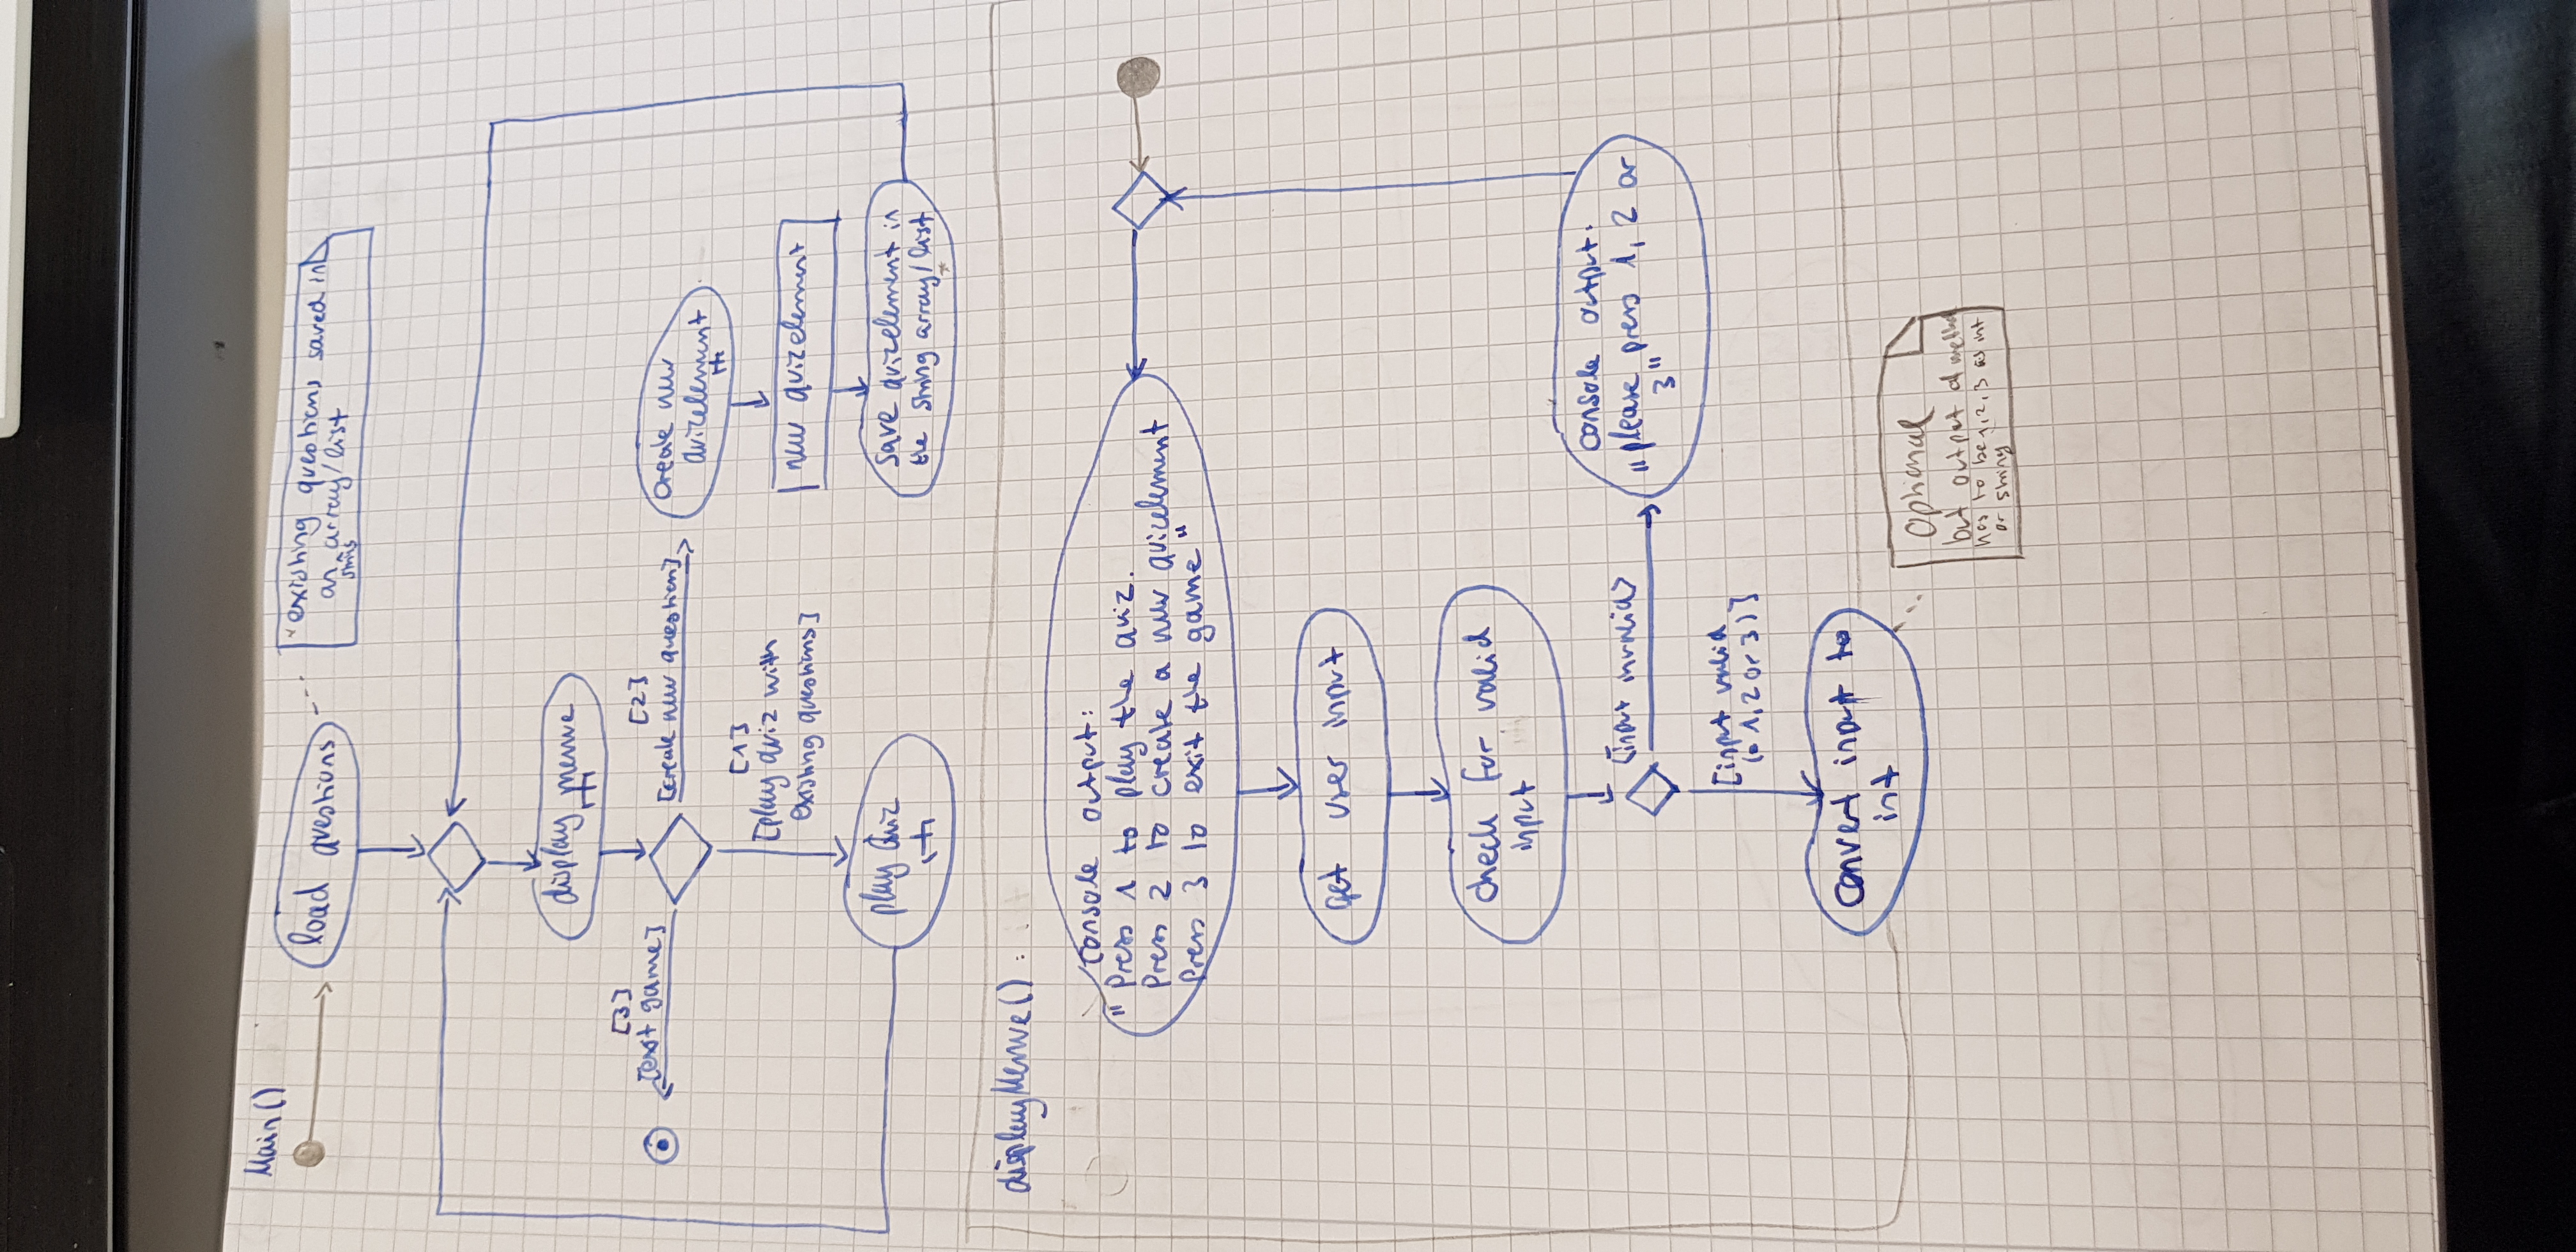 Main()
load questions
existing questions saved in
an array/list
string
display menue
[3]
[exit game]
[2]
[create new question]
create new
quizelement
[1]
[play quiz with
existing questions]
new quizelement
play Quiz
save quizelement in
the string array/list
displayMenue():
Console output:
"Press 1 to play the quiz.
Press 2 to create a new quizelement
Press 3 to exit the game"
get user input
check for valid
input
[input invalid]
console output:
"please press 1, 2 or
3"
[input valid
1, 2 or 3)]
convert input to
int
Optional
but output of method
has to be 1, 2, 3 as int
or string